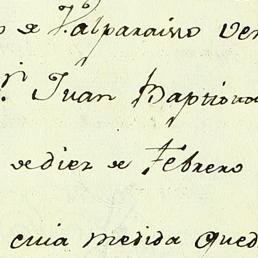 de Valparaiso ver
Juan Baptis
dediez de Febrero
cuia medida qued